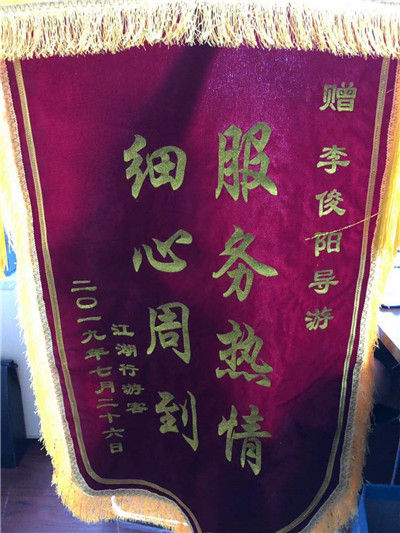 赠 李俊阳导游
服务热情
细心周到
江湖行游客
二〇一九年七月二十六日